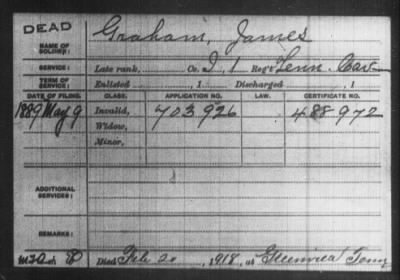 DEAD
NAME OF SOLDIER: Graham, James
SERVICE: Late rank, Co. I, 1 Reg't Tenn. Cav
TERM OF SERVICE: Enlisted , 1 Discharged , 1
DATE OF FILING. CLASS. APPLICATION NO. LAW. CERTIFICATE NO.
1889 May 9 Invalid, 703926 488972
Widow,
Minor,
ADDITIONAL SERVICES:
REMARKS:
Died Feb 20, 1918, at Tenn